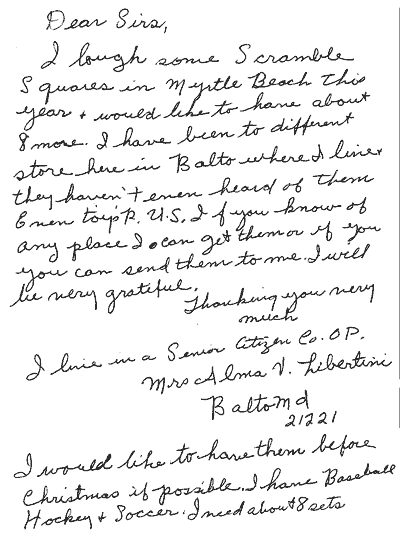 Dear Sirs,
I bough some Scramble
Squares in Myrtle Beach this
year + would like to have about
8 more. I have been to different
store here in Balto where I live +
they haven't even heard of them
Even toys R. U.S. If you know of
any place I can get them or if you
you can send them to me. I will
be very grateful.
Thanking you very
much
I live in a Senior Citizen Co. OP.
Mrs Alma V. Libertini
Balto Md
21221
I would like to have them before
Christmas if possible. I have Baseball
Hockey + Soccer. I need about 8 sets